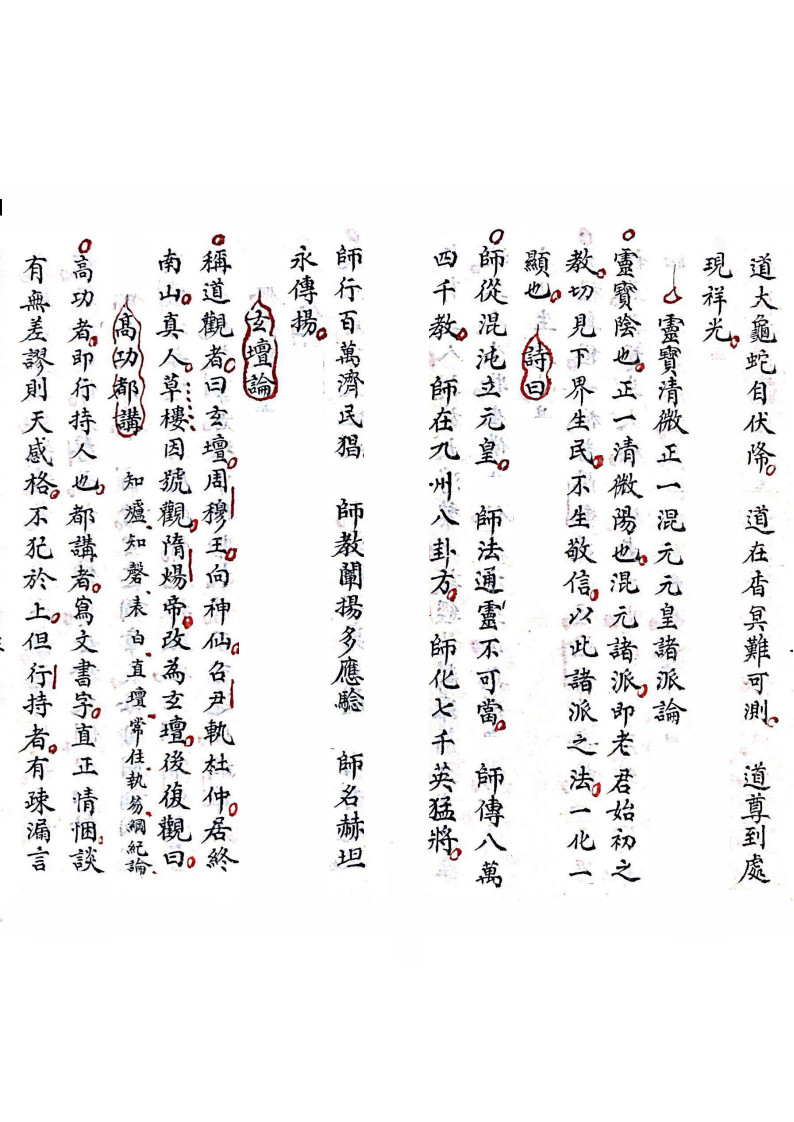 道大龜蛇自伏降 道在杳冥難可測 道尊到處
現祥光
靈寶清微正一混元元皇諸派論
靈寶陰也正一清微陽也混元諸派即老君始初之
教切見下界生民不生敬信以此諸派之法一化一
顯也 詩曰
師從混沌立元皇 師法通靈不可當 師傳八萬
四千教 師在九州八卦方 師化七千英猛將
師行百萬濟民猖 師教闡揚多應驗 師名赫坦
永傳揚
玄壇論
稱道觀者曰玄壇周穆王向神仙召尹軌杜仲居終
南山真人草樓因號觀隋煬帝改為玄壇後復觀曰
高功都講 知爐知磬表白直壇常住執笏綱紀論
高功者即行持人也都講者寫文書字直正情悃談
有無差謬則天感格不犯於上但行持者有疎漏言